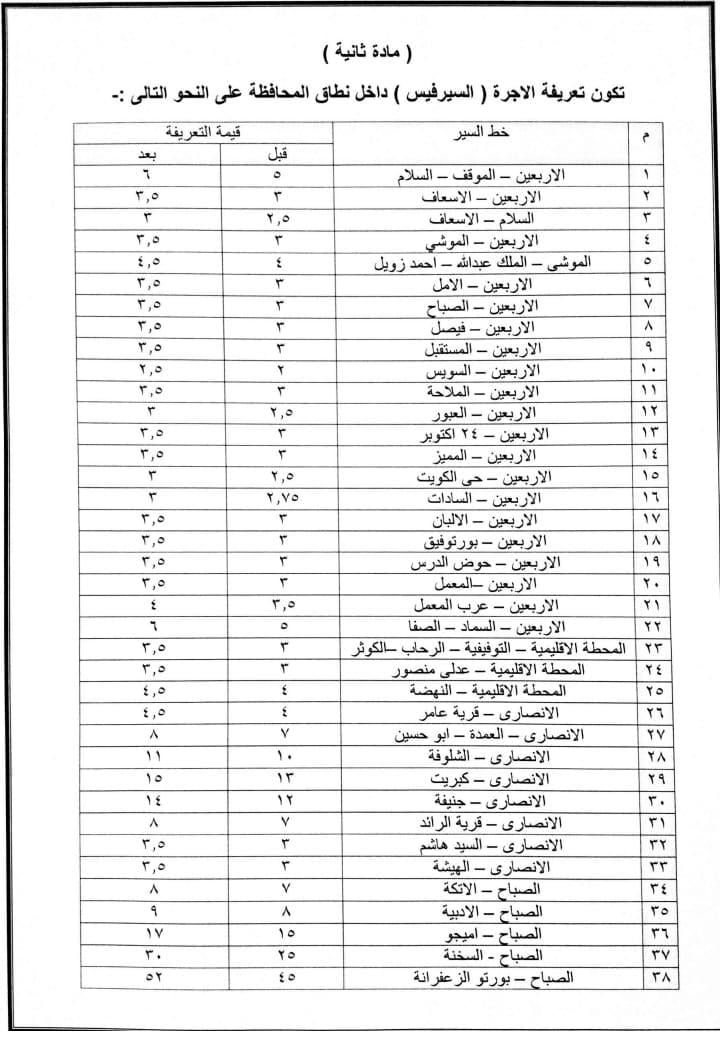 ( مادة ثانية )
تكون تعريفة الاجرة ( السيرفيس ) داخل نطاق المحافظة على النحو التالى :-
م خط السير قيمة التعريفة
قبل بعد
١ الاربعين – الموقف – السلام ٥ ٦
٢ الاربعين – الاسعاف ٣ ٣,٥
٣ السلام – الاسعاف ٢,٥ ٣
٤ الاربعين – الموشي ٣ ٣,٥
٥ الموشى – الملك عبدالله – احمد زويل ٤ ٤,٥
٦ الاربعين – الامل ٣ ٣,٥
٧ الاربعين – الصباح ٣ ٣,٥
٨ الاربعين – فيصل ٣ ٣,٥
٩ الاربعين – المستقبل ٣ ٣,٥
١٠ الاربعين – السويس ٢ ٢,٥
١١ الاربعين – الملاحة ٣ ٣,٥
١٢ الاربعين – العبور ٢,٥ ٣
١٣ الاربعين – ٢٤ اكتوبر ٣ ٣,٥
١٤ الاربعين – المميز ٣ ٣,٥
١٥ الاربعين – حى الكويت ٢,٥ ٣
١٦ الاربعين – السادات ٢,٧٥ ٣
١٧ الاربعين – الالبان ٣ ٣,٥
١٨ الاربعين – بورتوفيق ٣ ٣,٥
١٩ الاربعين – حوض الدرس ٣ ٣,٥
٢٠ الاربعين –المعمل ٣ ٣,٥
٢١ الاربعين – عرب المعمل ٣,٥ ٤
٢٢ الاربعين – السماد – الصفا ٥ ٦
٢٣ المحطة الاقليمية – التوفيقية – الرحاب –الكوثر ٣ ٣,٥
٢٤ المحطة الاقليمية – عدلى منصور ٣ ٣,٥
٢٥ المحطة الاقليمية – النهضة ٤ ٤,٥
٢٦ الانصارى – قرية عامر ٤ ٤,٥
٢٧ الانصارى – العمدة – ابو حسين ٧ ٨
٢٨ الانصارى – الشلوفة ١٠ ١١
٢٩ الانصارى – كبريت ١٣ ١٥
٣٠ الانصارى – جنيفة ١٢ ١٤
٣١ الانصارى – قرية الرائد ٧ ٨
٣٢ الانصارى – السيد هاشم ٣ ٣,٥
٣٣ الانصارى – الهيشة ٣ ٣,٥
٣٤ الصباح – الاتكة ٧ ٨
٣٥ الصباح – الادبية ٨ ٩
٣٦ الصباح – اميجو ١٥ ١٧
٣٧ الصباح - السخنة ٢٥ ٣٠
٣٨ الصباح – بورتو الزعفرانة ٤٥ ٥٢